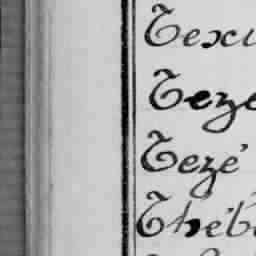 Texu
Teze
Tezé
Théb